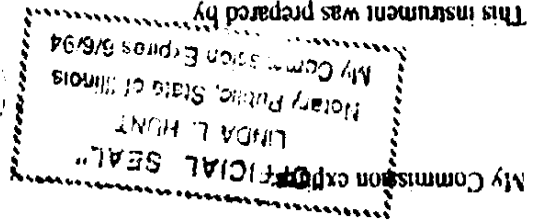 My Commission expires
"OFFICIAL SEAL"
LINDA L. HUNT
Notary Public, State of Illinois
My Commission Expires 6/6/94
This instrument was prepared by